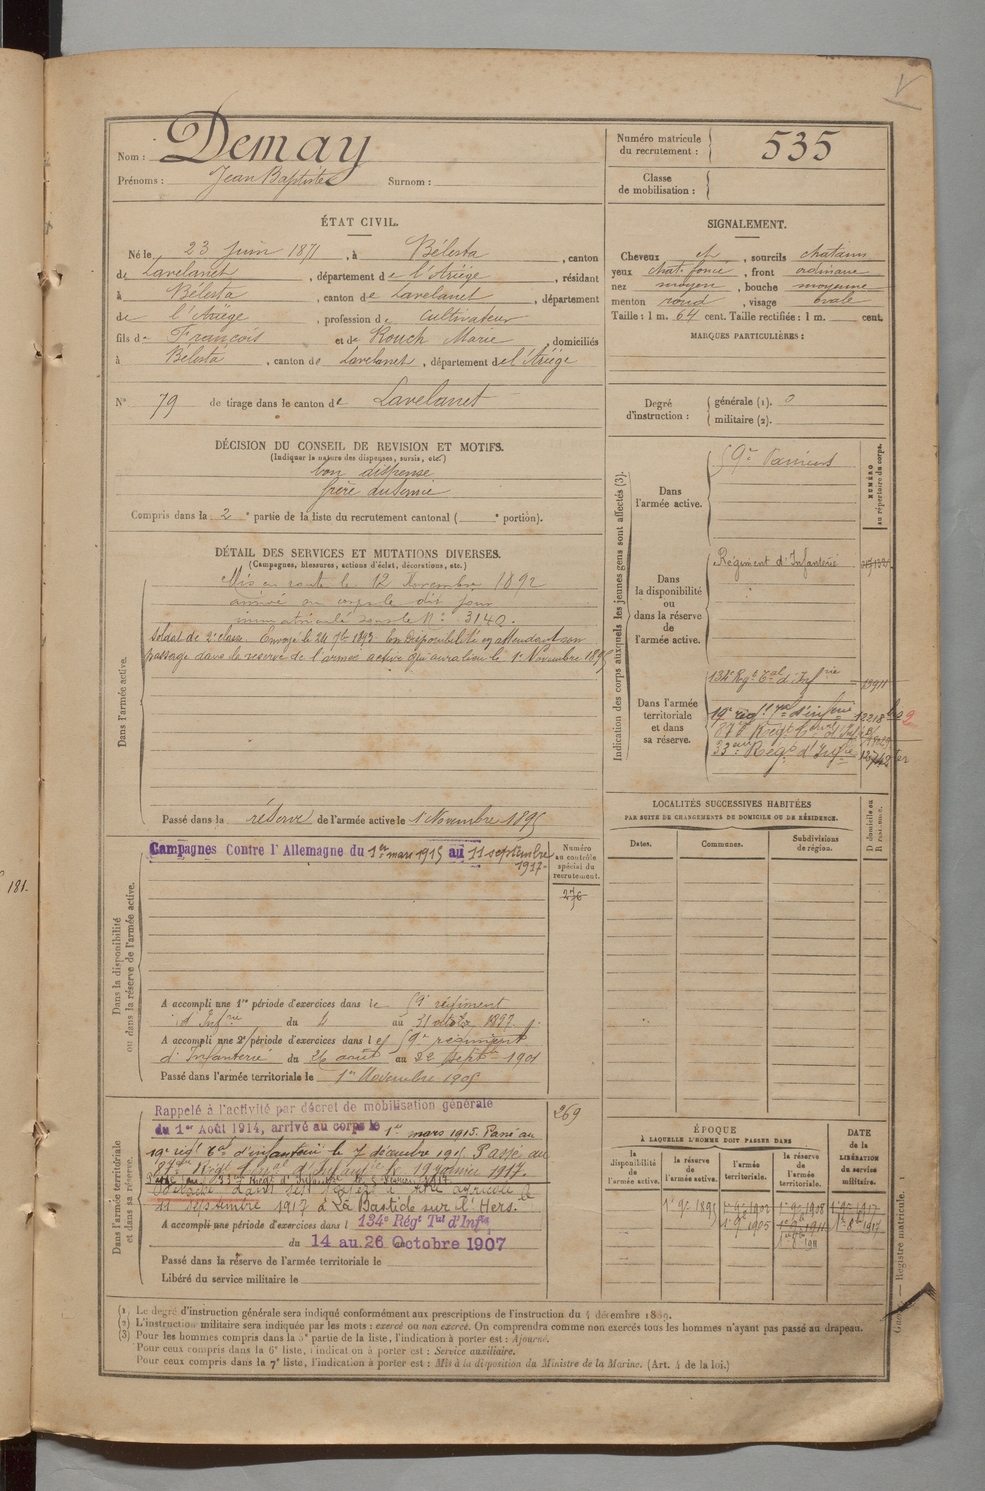 Nom : Demay
Prénoms : Jean Baptiste Surnom :
Numéro matricule du recrutement : 535
Classe de mobilisation :
ÉTAT CIVIL.
Né le 23 Juin 1871, à Bélesta, canton
de Lavelanet, département de l'Ariège, résidant
à Bélesta, canton de Lavelanet, département
de l'Ariège, profession de Cultivateur
fils de François et de Rouch Marie, domiciliés
à Bélesta, canton de Lavelanet, département de l'Ariège
N° 79 de tirage dans le canton de Lavelanet
SIGNALEMENT.
Cheveux et, sourcils chatains
yeux chat. foncé, front ordinaire
nez moyen, bouche moyenne
menton rond, visage ovale
Taille : 1 m. 64 cent. Taille rectifiée : 1 m. cent.
MARQUES PARTICULIÈRES :
Degré d'instruction :
générale (1). 3
militaire (2).
DÉCISION DU CONSEIL DE REVISION ET MOTIFS.
(Indiquer la nature des dispenses, sursis, etc.)
bon dispensé
frère au service
Compris dans la 2e partie de la liste du recrutement cantonal ( e portion).
DÉTAIL DES SERVICES ET MUTATIONS DIVERSES.
(Campagnes, blessures, actions d'éclat, décorations, etc.)
Dans l'armée active.
Mis en route le 12 Novembre 1892
arrivé au corps le dit jour
immatriculé sous le N° 3140.
Soldat de 2e classe. Envoyé le 24 7bre 1893 En disponibilité en attendant son
passage dans la réserve de l'armée active qui aura lieu le 1er Novembre 1895
Passé dans la réserve de l'armée active le 1 Novembre 1895
Dans la disponibilité ou dans la réserve de l'armée active.
Campagnes Contre l'Allemagne du 1er mars 1915 au 11 septembre
1917
Numéro au contrôle spécial du recrutement.
276
A accompli une 1re période d'exercices dans le 59e régiment
d'Infrie du 4 au 31 octobre 1897
A accompli une 2e période d'exercices dans le 59e régiment
d'Infanterie du 26 août au 22 septbre 1901
Passé dans l'armée territoriale le 1er Novembre 1905
Dans l'armée territoriale et dans sa réserve.
Rappelé à l'activité par décret de mobilisation générale
du 1er Août 1914, arrivé au corps le 1er mars 1915. Passé au
19e régt tal d'infanterie le 7 décembre 1915 Passé au
87e Régt d'Infanterie le 19 janvier 1917.
Passé au 33e Régt d'Infanterie
11 septembre 1917 à La Bastide sur l'Hers.
269
A accompli une période d'exercices dans l 134e Régt Tal d'Infie
du 14 au 26 Octobre 1907
Passé dans la réserve de l'armée territoriale le
Libéré du service militaire le
Indication des corps auxquels les jeunes gens sont affectés (3).
NUMÉRO au répertoire du corps.
Dans l'armée active.
59e Pamiers
Dans la disponibilité ou dans la réserve de l'armée active.
Régiment d'Infanterie
Dans l'armée territoriale et dans sa réserve.
134e Régt Tal d'Infrie 13911
19e régt Tal d'infrie
87e Régt
33e Régt d'Infrie
LOCALITÉS SUCCESSIVES HABITÉES
PAR SUITE DE CHANGEMENTS DE DOMICILE OU DE RÉSIDENCE.
Dates. Communes. Subdivisions de région. D domicile ou R résidence.
ÉPOQUE
À LAQUELLE L'HOMME DOIT PASSER DANS
DATE de la LIBÉRATION du service militaire.
la disponibilité de l'armée active. la réserve de l'armée active. l'armée territoriale. la réserve de l'armée territoriale.
1er 9bre 1895 1er 9bre 1902 1er 9bre 1908 1er 9bre 1917
1er 9bre 1905 1er 9bre 1911 1er 8bre 1917
(1) Le degré d'instruction générale sera indiqué conformément aux prescriptions de l'instruction du 4 décembre 1889.
(2) L'instruction militaire sera indiquée par les mots : exercé ou non exercé. On comprendra comme non exercés tous les hommes n'ayant pas passé au drapeau.
(3) Pour les hommes compris dans la 5e partie de la liste, l'indication à porter est : Ajourné.
Pour ceux compris dans la 6e liste, l'indication à porter est : Service auxiliaire.
Pour ceux compris dans la 7e liste, l'indication à porter est : Mis à la disposition du Ministre de la Marine. (Art. 4 de la loi.)
— Registre matricule. 1
181.